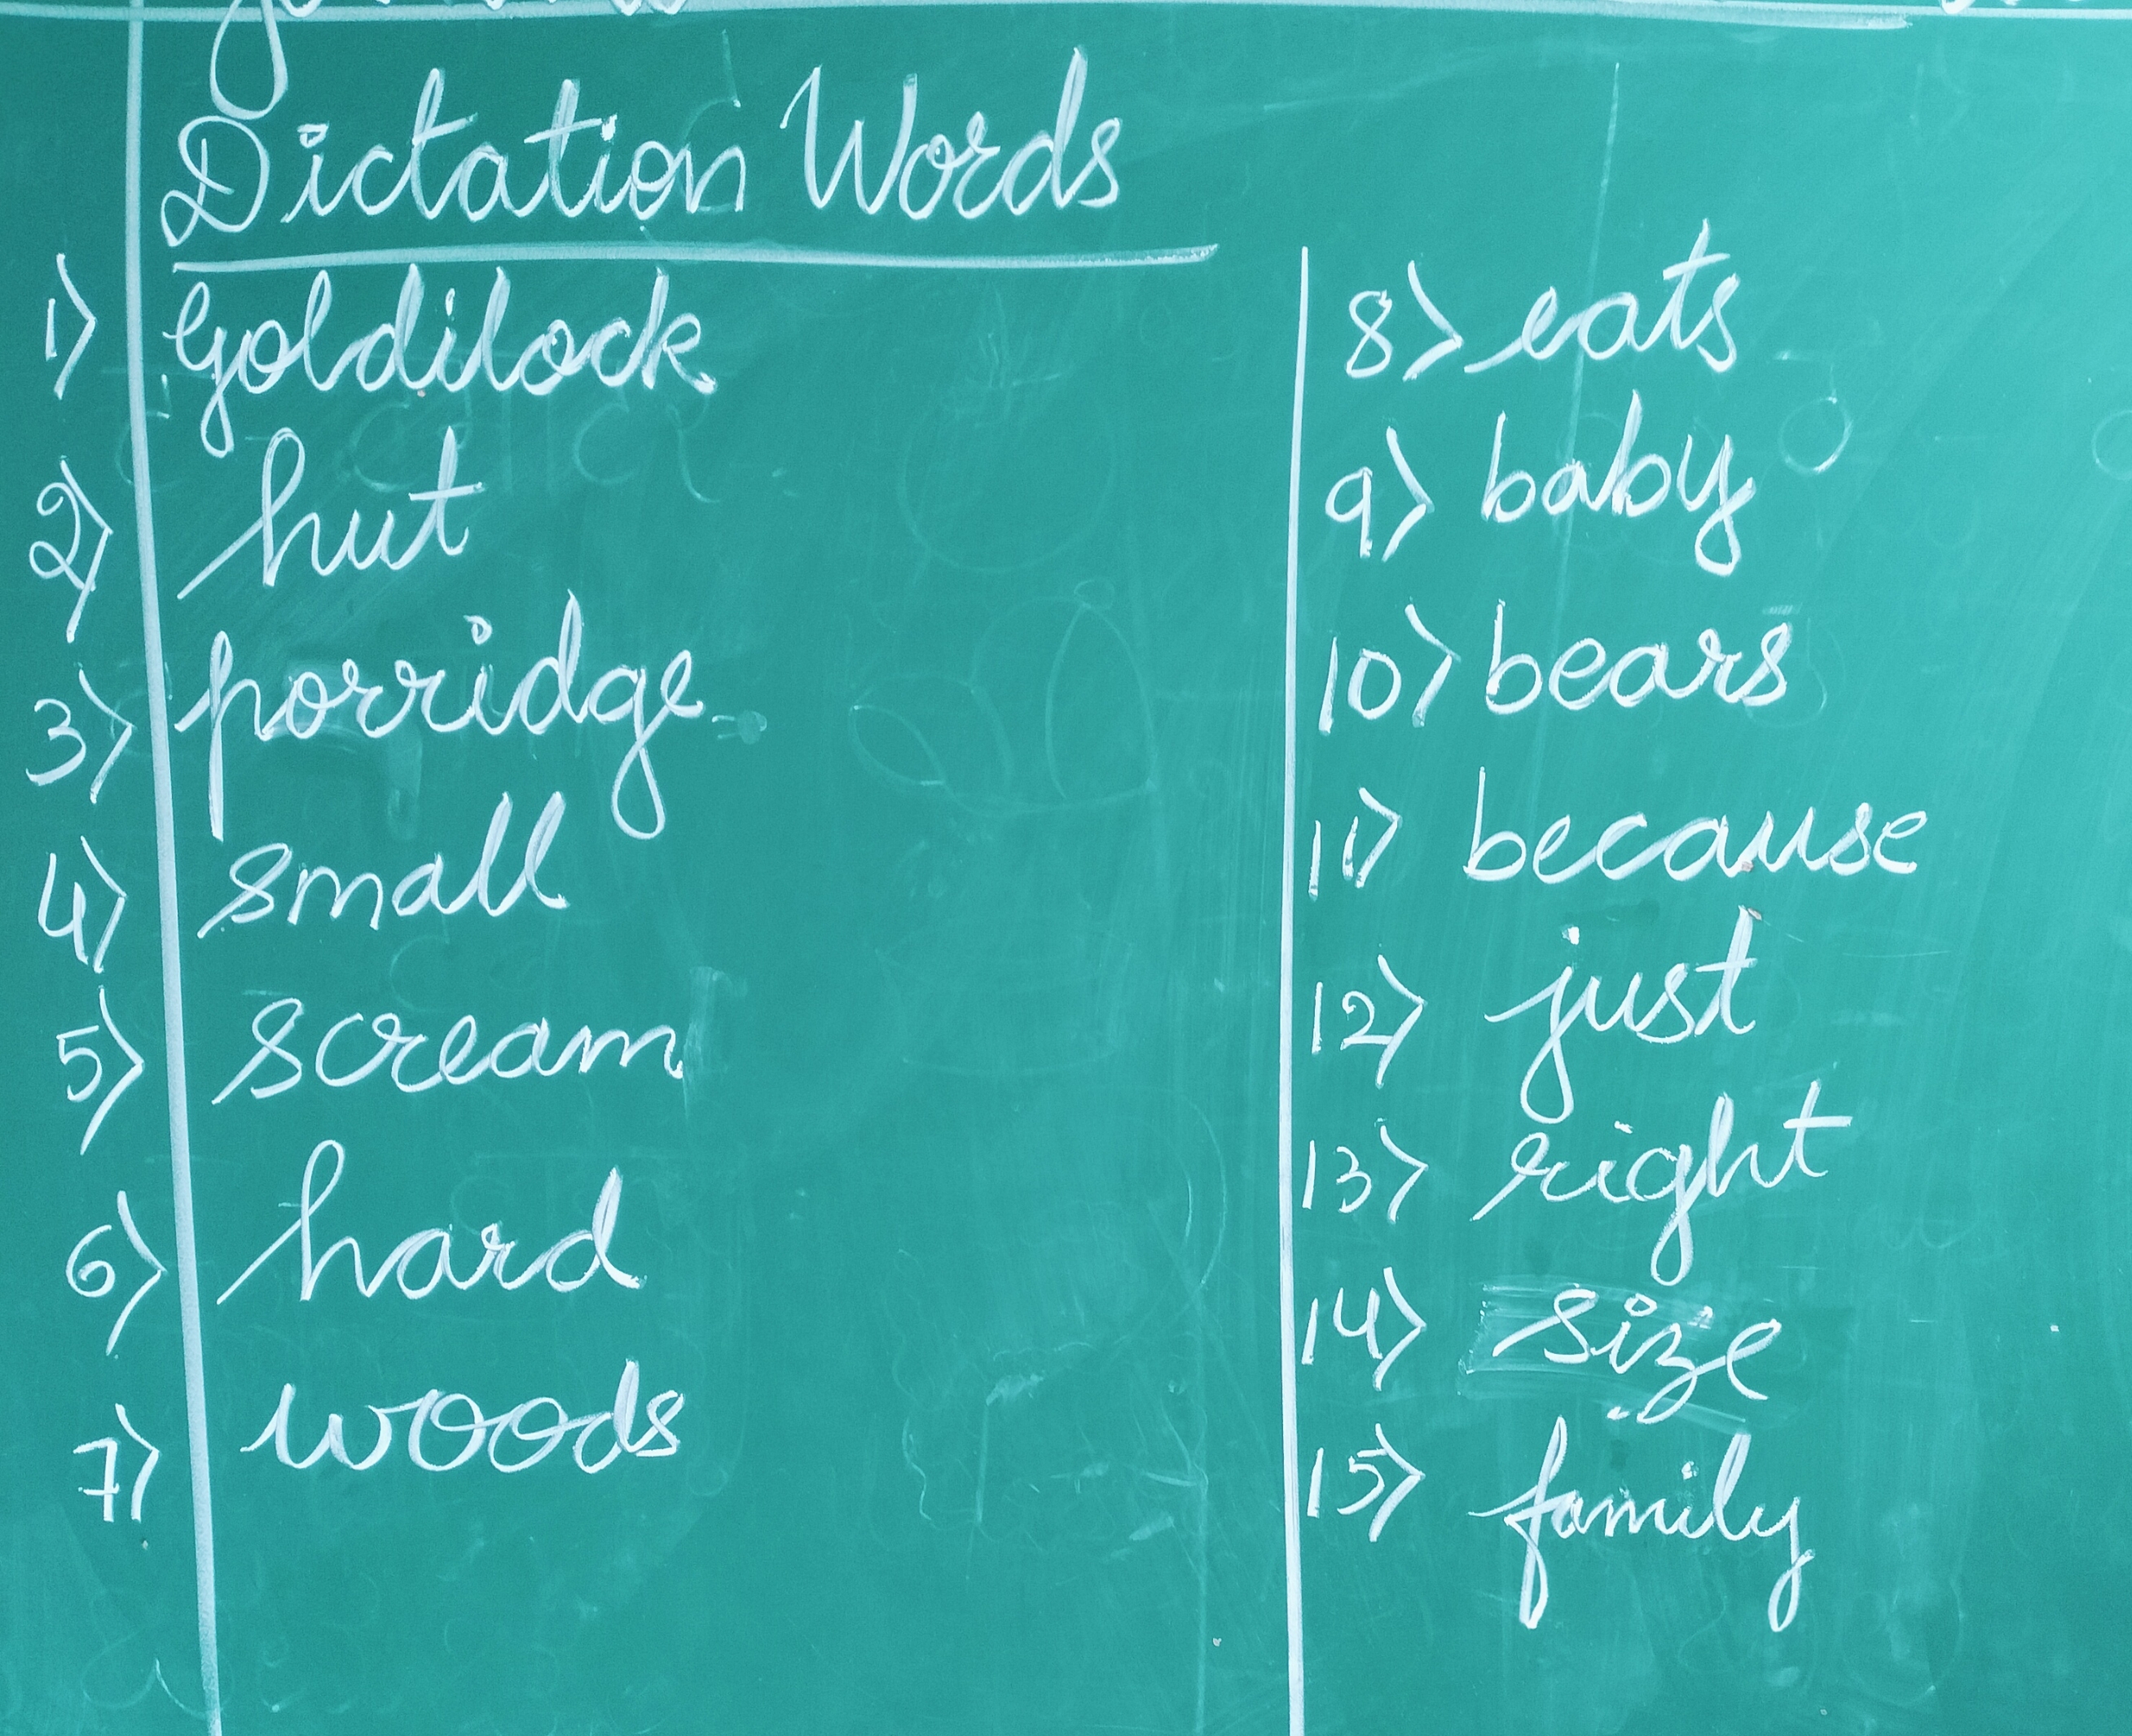 Dictation Words
1) Goldilock
2) hut
3) porridge
4) small
5) scream
6) hard
7) woods
8) eats
9) baby
10) bears
11) because
12) just
13) right
14) size
15) family